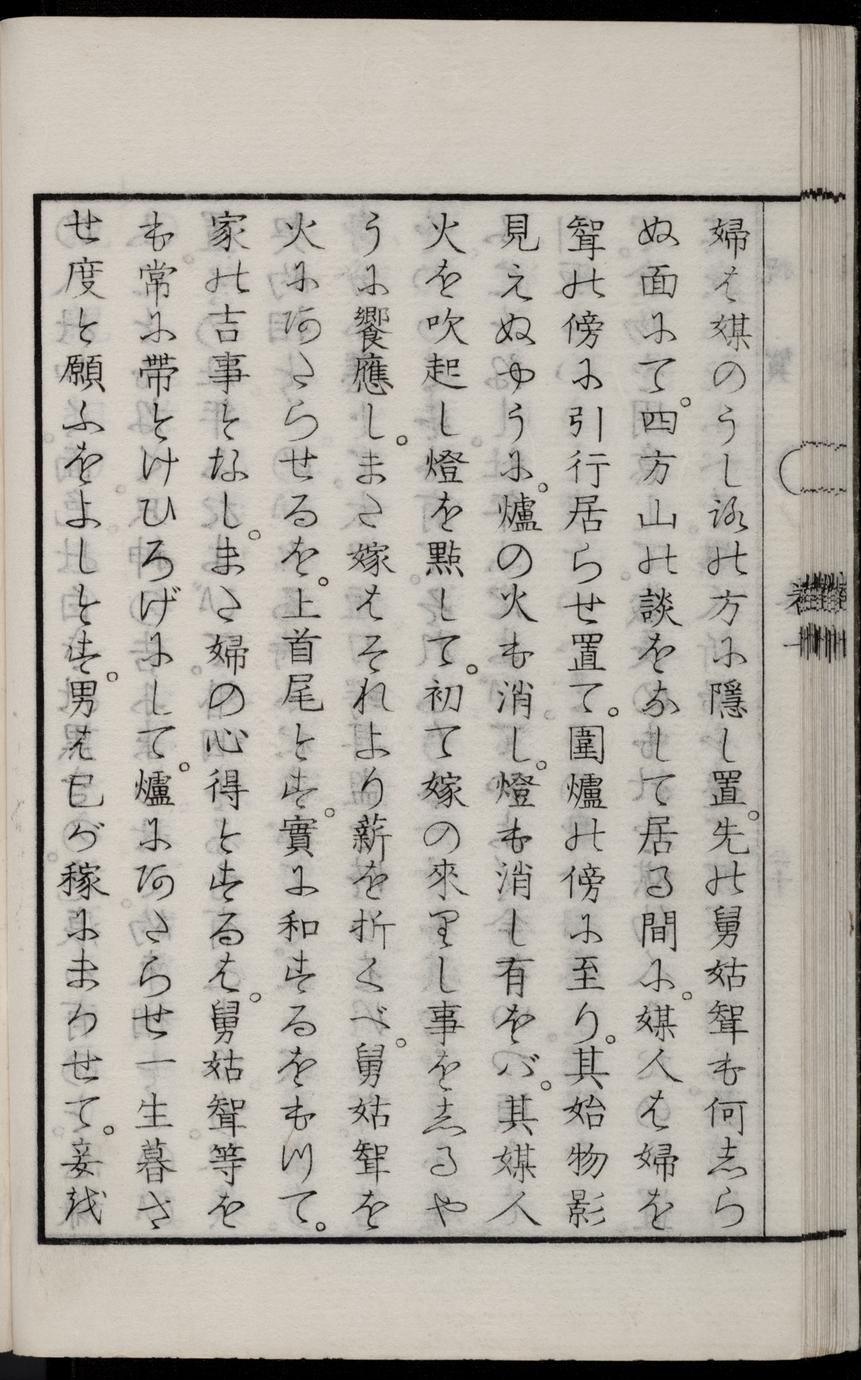 婦は媒のうしろの方に隠し置。先の舅姑聟も何しら
ぬ面にて。四方山の談をなして居る間に。媒人は婦を
聟の傍に引行居らせ置て。圍爐の傍に至り。其始物影
見えぬやうに。爐の火も消し。燈も消し有をバ。其媒人
火を吹起し燈を點して。初て嫁の來りし事をしるや
うに饗應し。また嫁はそれより薪を折くべ。舅姑聟を
火にあたらせるを。上首尾とす。實に和するをもつて。
家の吉事となし。また婦の心得とするは。舅姑聟等を
も常に帶とけひろげにして。爐にあたらせ一生暮さ
せ度と願ふをよしとす。男は己が稼にまかせて。妾を